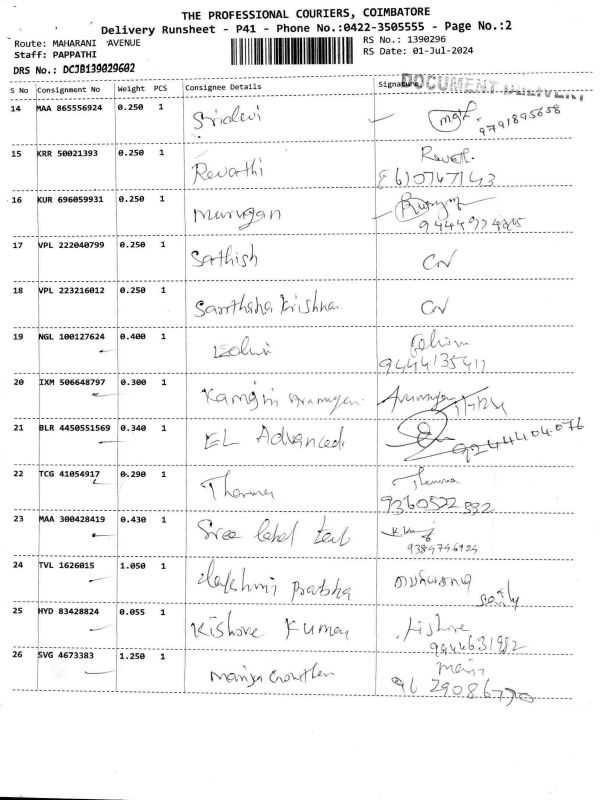 THE PROFESSIONAL COURIERS, COIMBATORE
Delivery Runsheet - P41 - Phone No.:0422-3505555 - Page No.:2
Route: MAHARANI AVENUE
RS No.: 1390296
Staff: PAPPATHI
RS Date: 01-Jul-2024
DRS No.: DCJB139029602
DOCUMENT DELIVERY
S No Consignment No Weight PCS Consignee Details Signature
14 MAA 865556924 0.250 1 Sridevi
9791895658
15 KRR 50021393 0.250 1 Revathi Revathi
16 KUR 696059931 0.250 1 Murugan
17 VPL 222040799 0.250 1 Sathish CN
18 VPL 223216012 0.250 1 Krishna CN
19 NGL 100127624 0.400 1
9444135411
20 IXM 506648797 0.300 1 Arumugam
1/7/24
21 BLR 4450551569 0.340 1 EL Advanced
9244404076
22 TCG 41054917 0.290 1
9360522832
23 MAA 300428419 0.430 1 Sree label
9384746924
24 TVL 1626015 1.050 1 Lakshmi Prabha
25 HYD 83428824 0.055 1 Kishore Kumar Kishore
9944631982
26 SVG 4673383 1.250 1